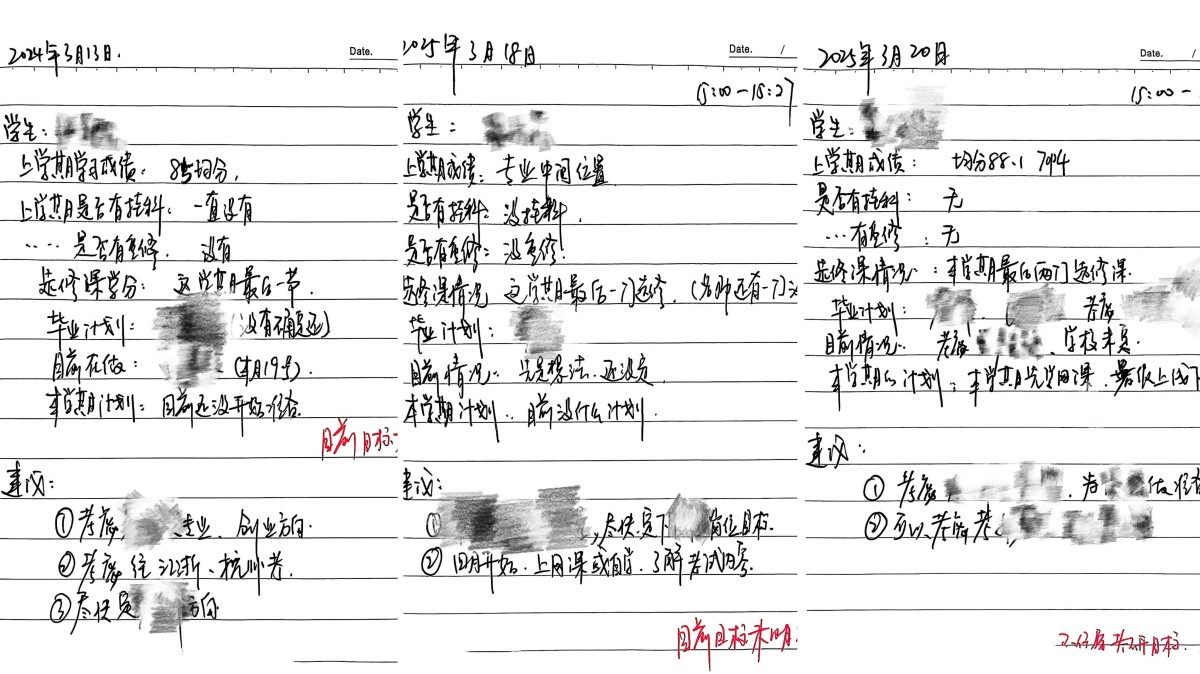 2024年3月13日.
Date.
学生:
上学期学习成绩: 85均分.
上学期是否有挂科: 一直没有
..... 是否有重修. 没有
选修课学分: 这学期最后一节.
毕业计划: (没有确定还)
目前在做: (本月19号).
本学期计划: 目前还没开始准备.
目前目标:
建议:
①考虑 专业、创业方向.
②考虑往江浙、杭州考.
③尽快定 方向
2025年3月18日
Date. /
15:00-15:27
学生:
上学期成绩: 专业中间位置
是否有挂科: 没挂科.
是否有重修: 没重修.
选修课情况 这学期最后一门选修. (名师还有一门
毕业计划:
目前情况: 先是想法. 还没定.
本学期计划: 目前没什么计划.
建议:
① ,尽快定下 岗位目标.
② 四月开始. 上网课或自学. 了解考试内容.
目前目标未明.
2025年3月20日
Date. /
15:00-
学生:
上学期成绩: 均分88.1
是否有挂科: 无
...有重修: 无
选修课情况: 本学期最后两门选修课.
毕业计划: 考虑
目前情况: 考虑 、学校未定.
本学期的计划: 本学期先学网课. 暑假上线下
建议:
① 考虑 .
② 可以考虑考